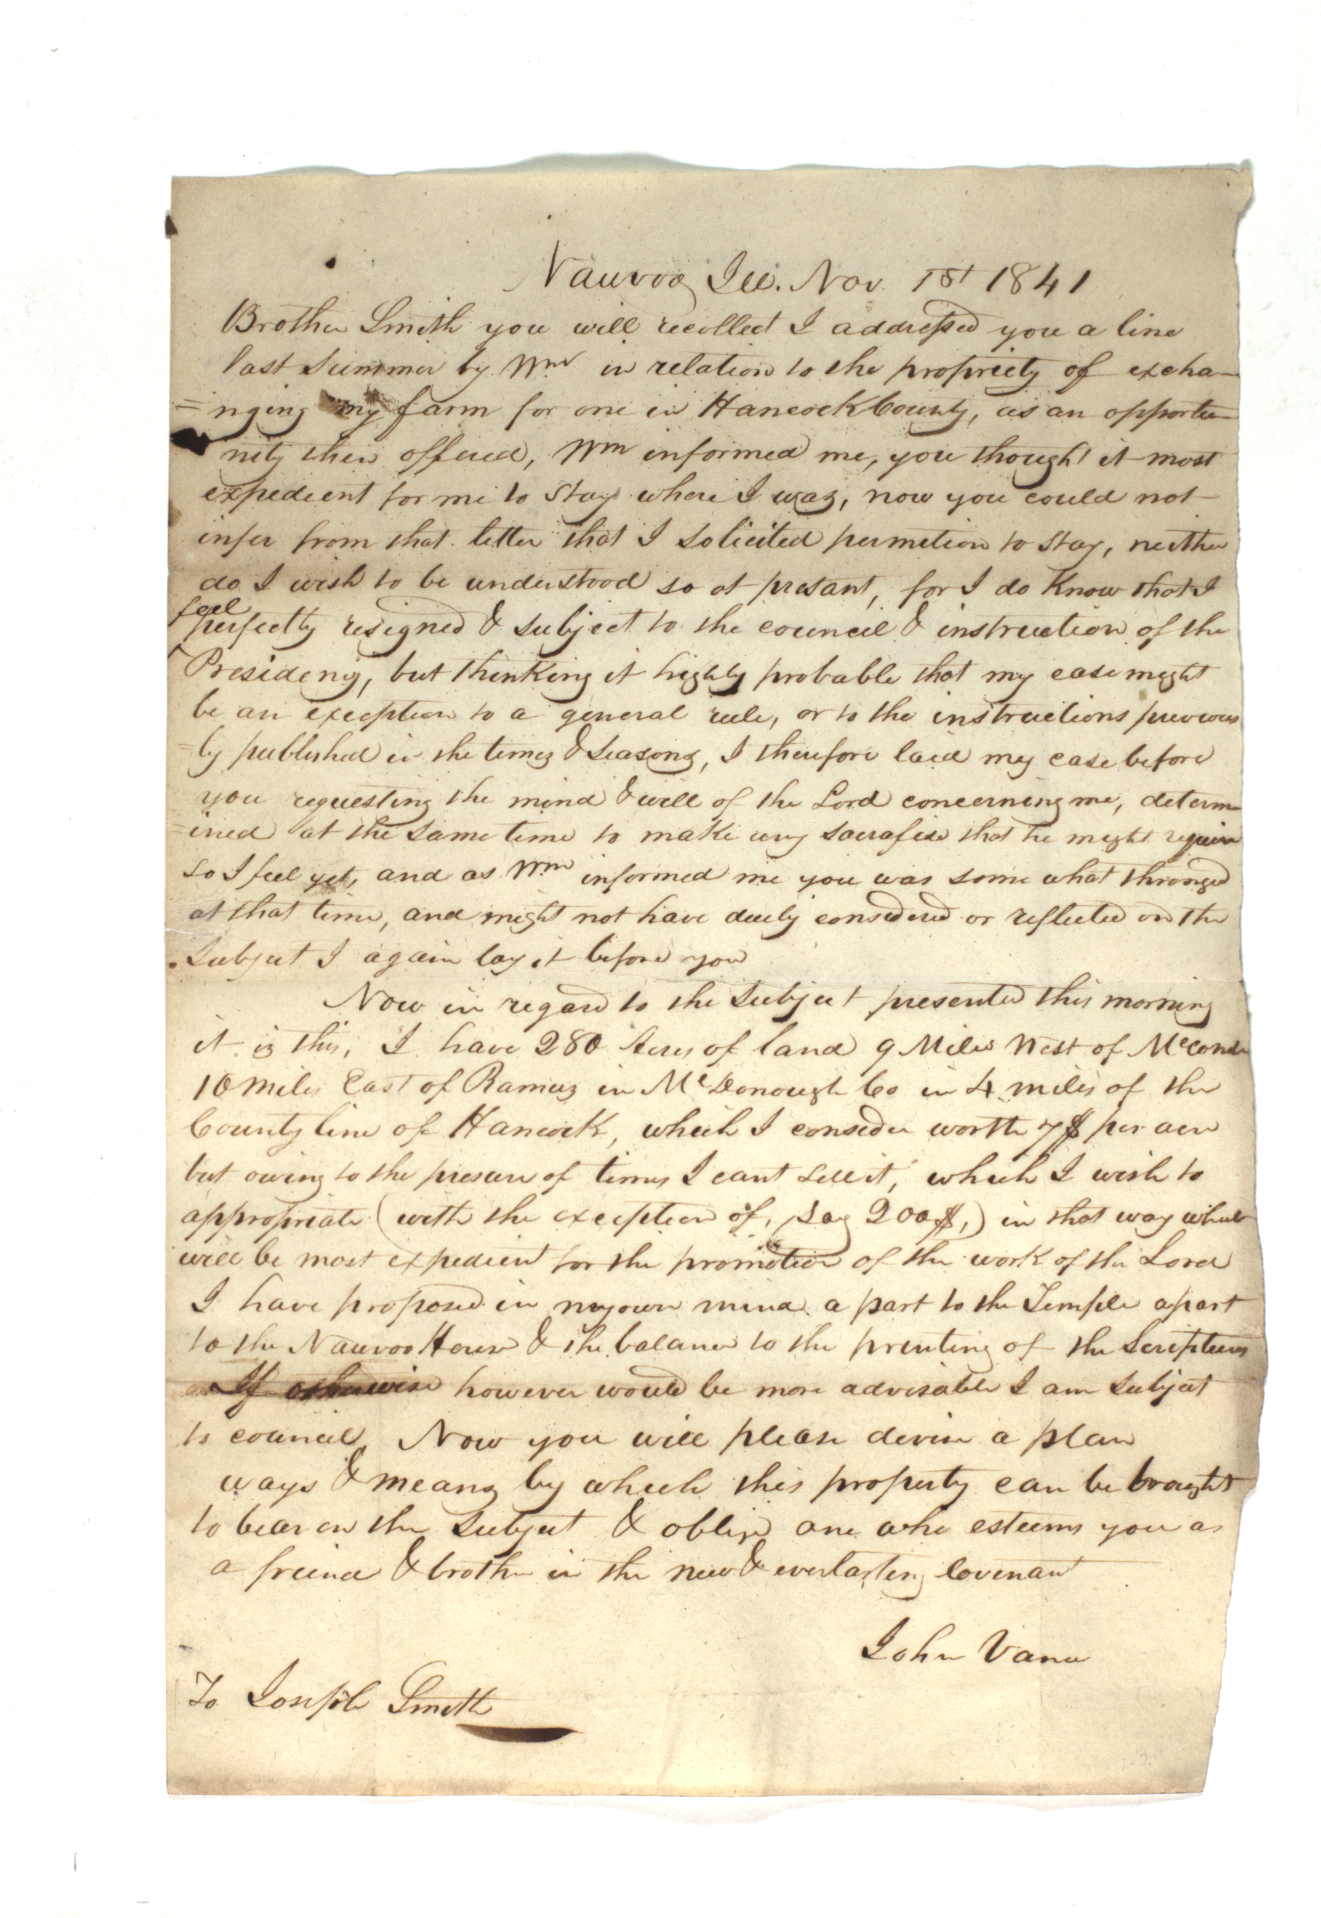 Nauvoo Ill. Nov. 1st 1841
Brother Smith you will recollect I addressed you a line
last Summer by Wm in relation to the propriety of excha-
=nging my farm for one in Hancock County, as an opportu-
nity then offered, Wm informed me, you thought it most
expedient for me to stay where I was, now you could not
infer from that letter that I solicited permetion to stay, neither
do I wish to be understood so at presant, for I do know that I
feel
perfectly resigned & subject to the council & instruction of the
Presidency, but thinking it highly probable that my case might
be an exception to a general rule, or to the instructions previous
=ly published in the times & Seasons, I therefore laid my case before
you requesting the mind & will of the Lord concerning me, determ
=ined at the same time to make any sacrafise that he might require
so I feel yet, and as Wm informed me you was some what thronged
at that time, and might not have duely considered or reflected on the
Subject I again lay it before you
Now in regard to the Subject presented this morning
it is this, I have 280 Acres of land 9 Miles West of McComb
10 miles East of Ramus in McDonough Co in 4 miles of the
County line of Hancock, which I consider worth 7$ per acre
but owing to the presure of times I cant sell it, which I wish to
appropriate (with the exception of, say 200$,) in that way which
will be most expedient for the promotion of the work of the Lord
I have proposed in my own mind a part to the Temple apart
to the Nauvoo House & the balance to the printing of the Scriptures
If otherwise however would be more advisable I am subject
to council, Now you will please devise a plan
ways & means by which this property can be brought
to bear on the Subject & oblige one who esteems you as
a friend & brother in the new & everlasting Covenant
John Vance
To Joseph Smith